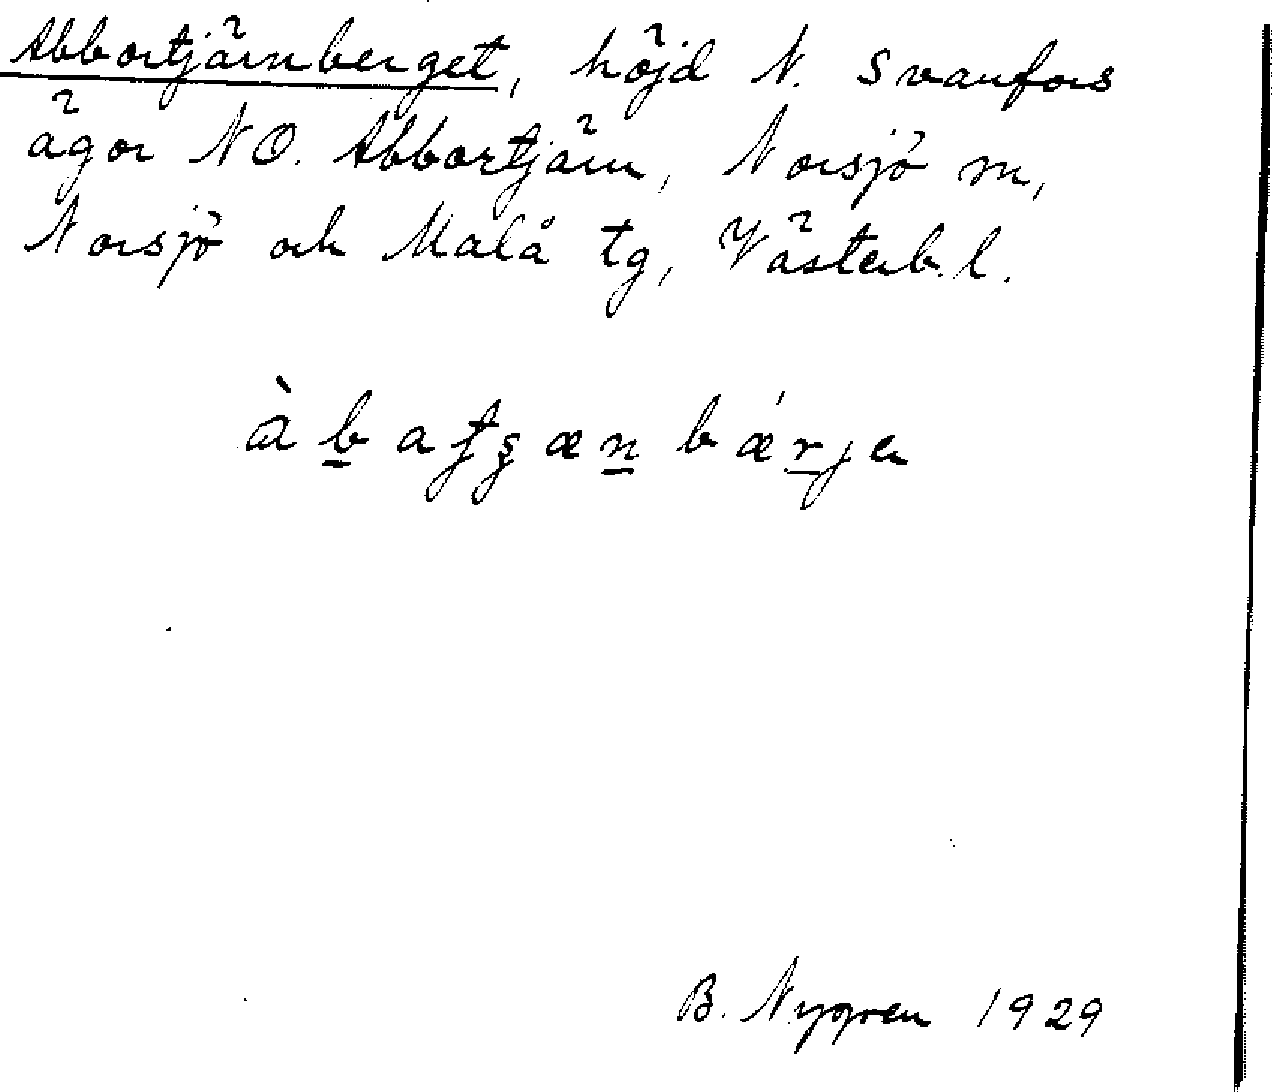 Abbortjärnberget, höjd N. Svanfors
ägor NO. Abbortjärn, Norsjö sn,
Norsjö och Malå tg, Västerb. l.
B. Nygren 1929